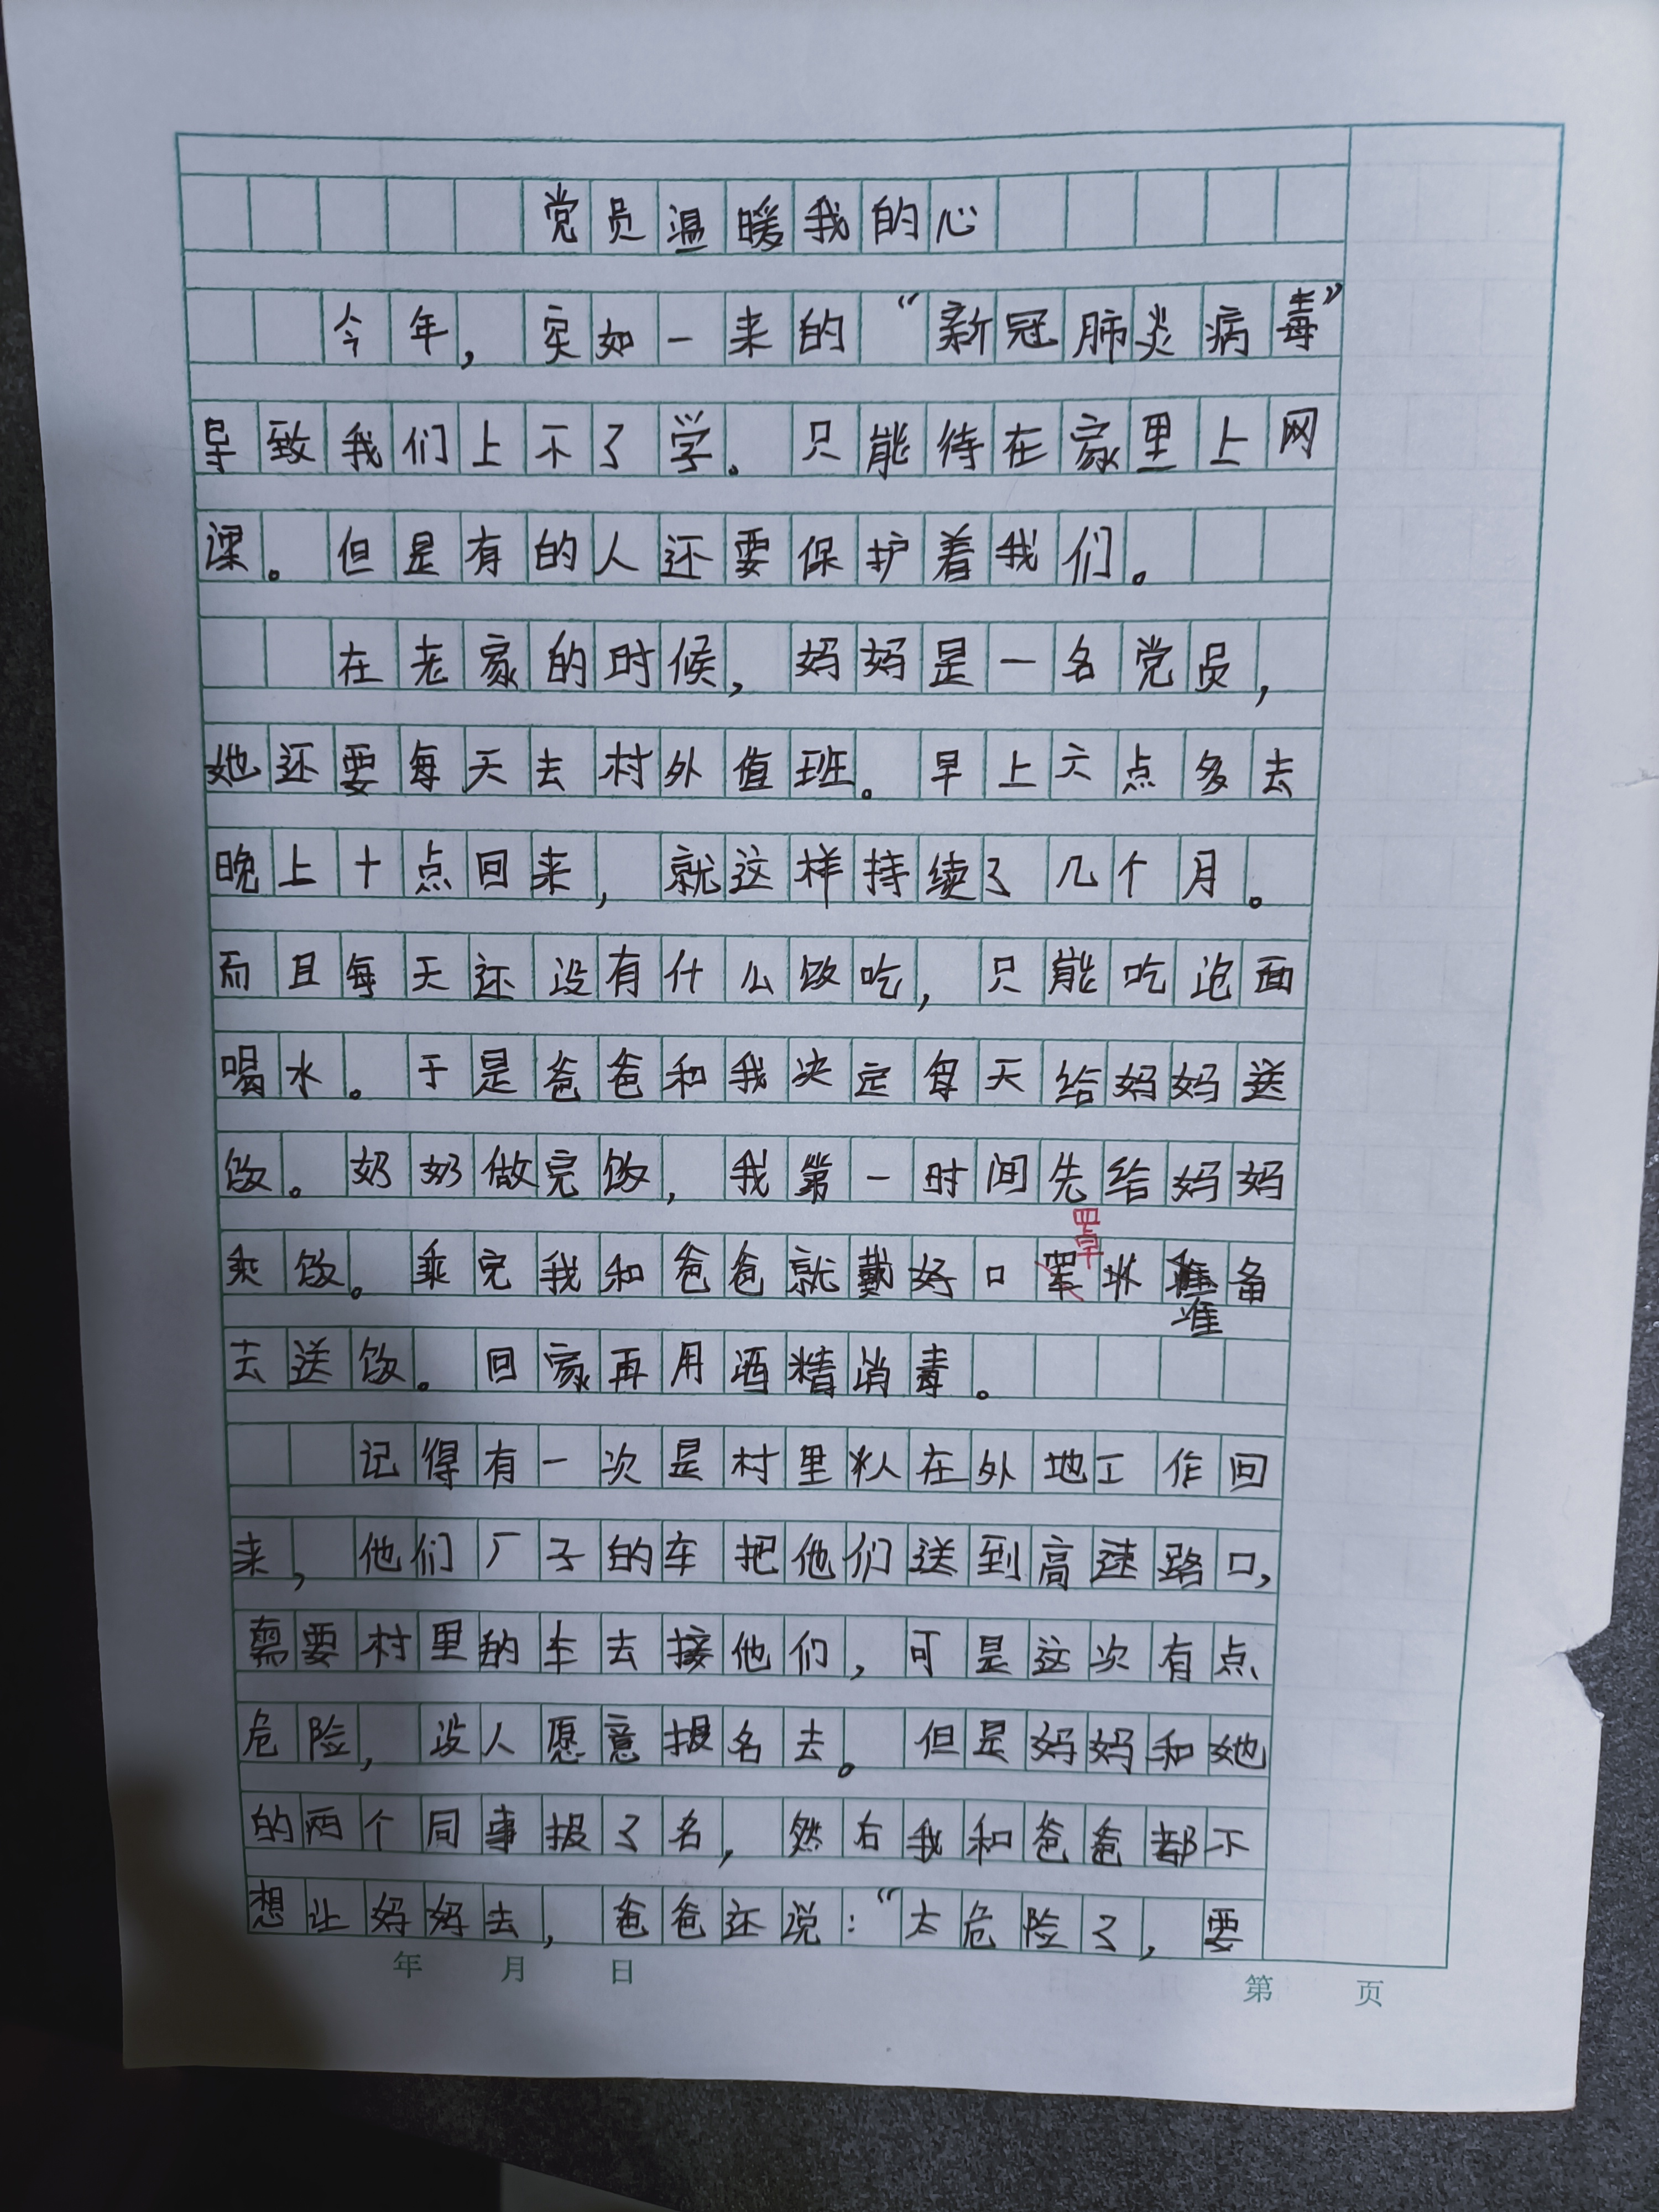 党员温暖我的心
今年，突如一来的“新冠肺炎病毒”
导致我们上不了学。只能待在家里上网
课。但是有的人还要保护着我们。
在老家的时候，妈妈是一名党员，
她还要每天去村外值班。早上六点多去
晚上十点回来，就这样持续了几个月。
而且每天还没有什么饭吃，只能吃泡面
喝水。于是爸爸和我决定每天给妈妈送
饭。奶奶做完饭，我第一时间先给妈妈
乘饭。乘完我和爸爸就戴好口罩准备
去送饭。回家再用酒精消毒。
记得有一次是村里人在外地工作回
来，他们厂子的车把他们送到高速路口，
需要村里的车去接他们，可是这次有点
危险，没人愿意报名去。但是妈妈和她
的两个同事报了名，然右我和爸爸都不
想让妈妈去，爸爸还说：“太危险了，要
年 月 日
第 页